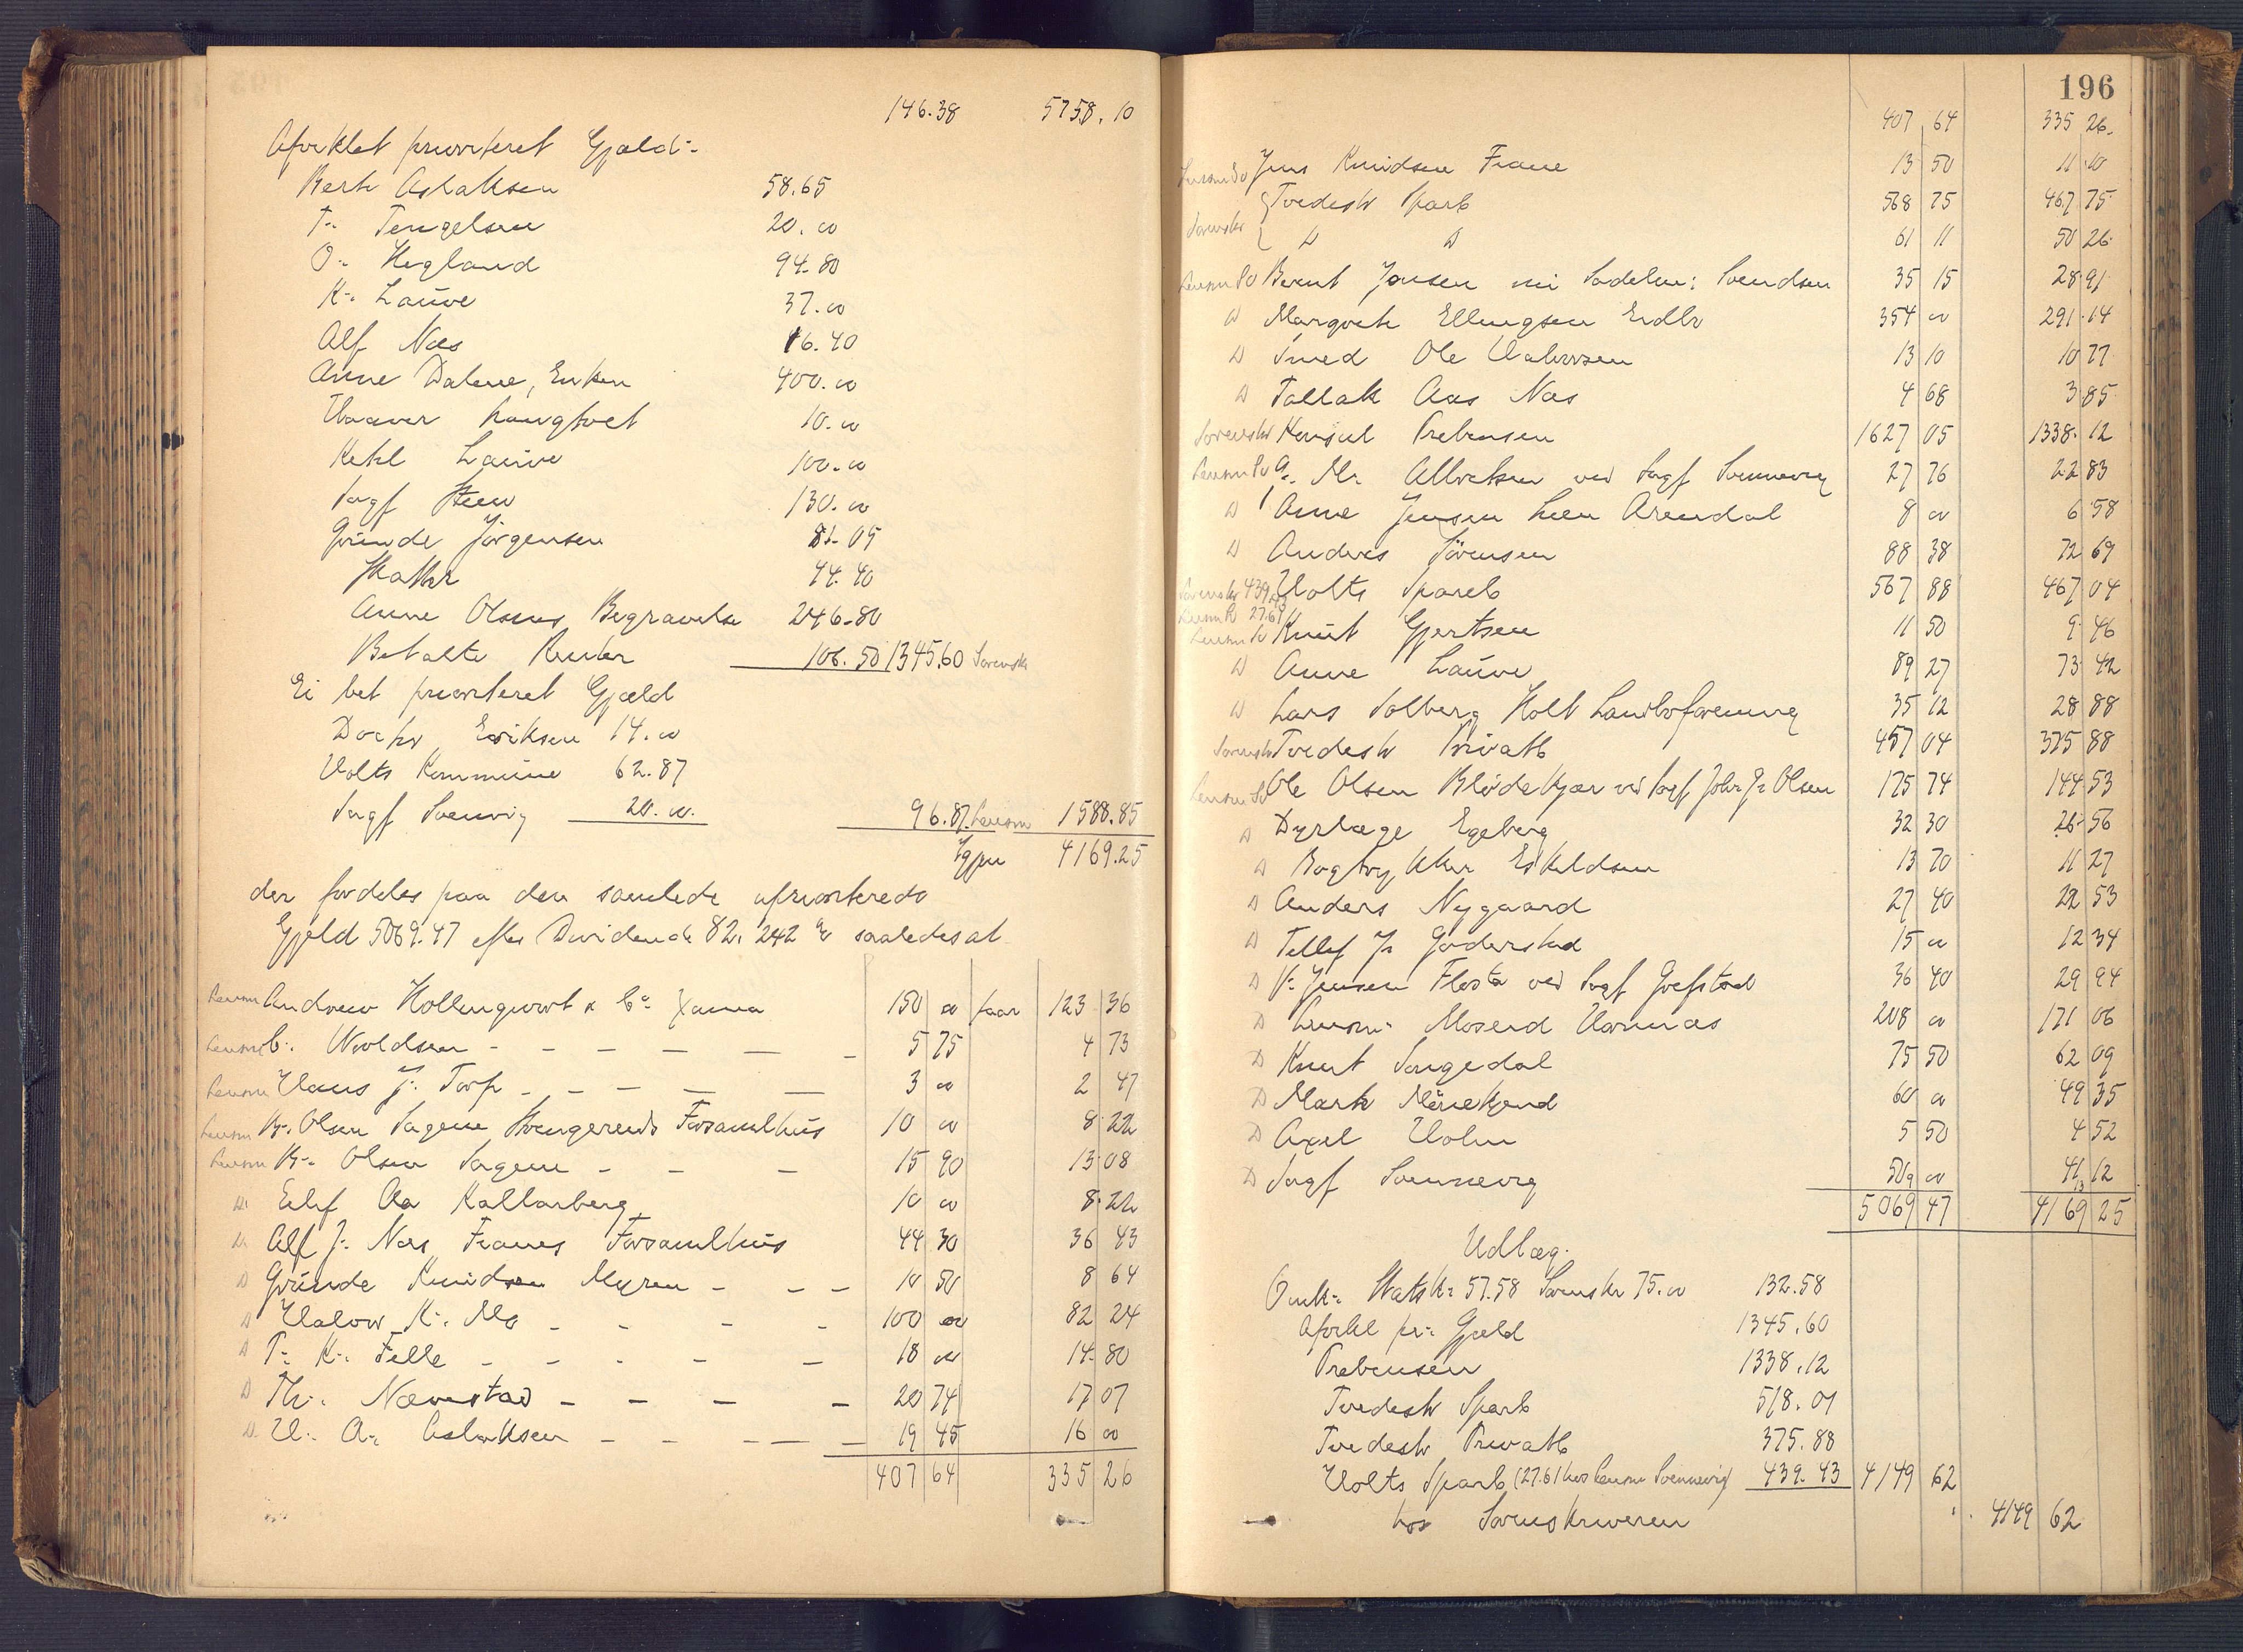 146.38 5758.10
Afviklet prioriteret Gjæld:
Berte Aslaksen 58.65
T. Tengelsen 20.00
O. Hegland 94.80
K. Lauve 37.00
Alf Næs 16.40
Anne Dalene, Enken 400.00
Haaver Langtvet 10.00
Ketil Lauve 100.00
Sagf Steen 130.00
Gunde Jörgensen 81.05
Skatter 44.40
Anne Olsens Begravelse 246.80
Betalte Renter 106.50 1345.60 Sorenskr
Ei bet prioriteret Gjæld
Doctor Eriksen 14.00
Holts Kommune 62.87
Sagf Sonnevig 20.00. 96.87 Lensm 1588.85
Igjen 4169.25
der fordeles paa den samlede uprioriterede
Gjæld 5069.47 efter Dividende 82.242 % saaledes at
Lensm Andrew Hollingworth & Co 150 00 faar 123 36
Lensm C. Woldsen - - - - - 5 75 4 73
Lensm Hans J. Torp - - - - - 3 00 2 47
Lensm Kr. Olsen Sagene Forsamlhus 10 00 8 22
Lensm Kr. Olsen Sagene - - - 15 90 13 08
D Eilef Aa Kallarberg 10 00 8 22
D Alf J. Næs Fianes Forsamlhus 44 30 36 43
D Gunde Knudsen Myren - - - 10 50 8 64
D Halvor K. Mo - - - - 100 00 82 24
D T. K. Felle - - - - - 18 00 14 80
D Th. Nævestad - - - - 20 74 17 07
D H. A. Aslaksen - - - - - 19 45 16 00
407 64 335 26
196
407 64 335 26.
Lensm So Jens Knudsen Fiane 13 50 11 10
Sorenskr Tvedestr Sparb 568 75 467 75
D D 61 11 50 26
Lensm So Bernt Jensen Sadelm: Svendsen 35 15 28 91
D Margrete Ellingsen Eidbo 354 00 291 14
D Smed Ole Halvorsen 13 10 10 77
D Tallak Aas Næs 4 68 3 85
Sorenskr Konsul Prebensen 1627 05 1338 12
Lensm So A. M. Albretsen ved Sagf Sonnevig 27 76 22 83
D Anne Jensen Lien Arendal 8 00 6 58
D Anders Sörensen 88 38 72 69
Sorenskr 439,43 Holts Spareb 567 88 467 04
Lensm So 27.61
Lensm So Knut Gjertsen 11 50 9 46
D Anne Lauve 89 27 73 42
D Lars Solberg Holt Landboforening 35 12 28 88
Sorenskr Tvedestr Privatb 457 04 375 88
Lensm So Ole Olsen Blödekjær ved Sagf John Jr Olsen 175 74 144 53
D Dyrlæge Egeberg 32 30 26 56
D Bogtrykker Eskildsen 13 70 11 27
D Anders Nygaard 27 40 22 53
D Tellef J. Goderstad 15 00 12 34
D P. Jensen Flosta ved Sagf Grefstad 36 40 29 94
D Lensm: Moseid Vannæs 208 00 171 06
D Knut Songedal 75 50 62 09
D Marte 60 00 49 35
D Axel Holm 5 50 4 52
D Sagf Sonnevig 50 00 41 12
5069 47 4169 25
Udlæg:
Omk: Statsk: 57.58 Sorenskr 75.00 132.58
Afvikl pr: Gjæld 1345.60
Prebensen 1338.12
Tvedestr Sparb 518.01
Tvedestr Privatb 375.88
Holts Sparb (27.61 hos Lensm Sonnevig) 439.43 4149 62
hos Sorenskriveren 4149 62